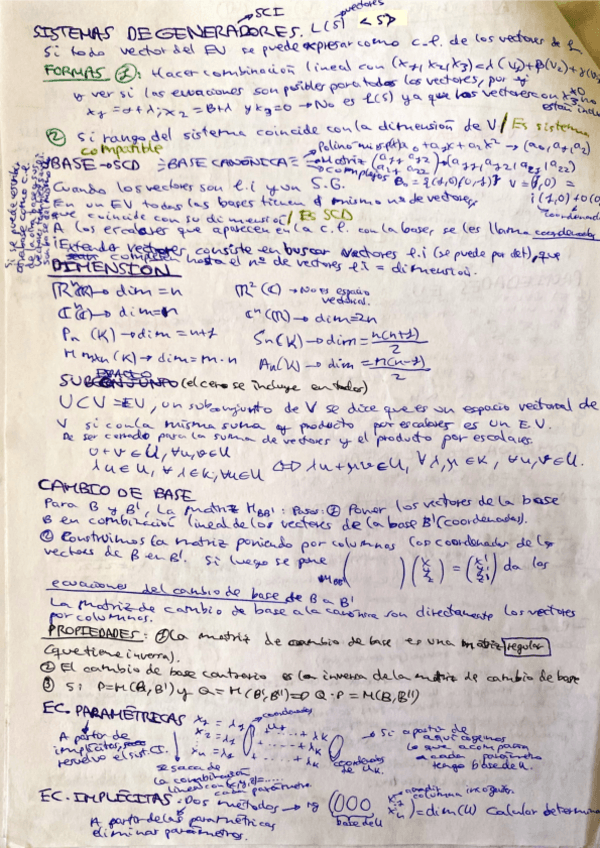 SCI
vectores
SISTEMAS DE GENERADORES. L(S) <S>
Si todo vector del EV se puede expresar como c.l. de los vectores de
FORMAS ①: Hacer combinación lineal con (x₁, x₂, x₃) = α(V₁) + β(V₂) + γ(V₃)
y ver si las ecuaciones son posibles para todos los vectores, por ej
x₁ = α + λ; x₂ = B + λ y x₃ = 0 → No es L(S) ya que los vectores con x₃ ≠ 0 no están
② Si rango del sistema coincide con la dimensión de V / Es sistema
compatible
Polinomios a₀ + a₁x + a₂x² → (a₀, a₁, a₂)
BASE → SCD BASE CANÓNICA = Matriz → (a₁₁, a₁₂, a₂₁, a₂₂)
complejos
Cuando los vectores son l.i y un S.G.
En un EV todas las bases tienen el mismo nº de vectores
que coincide con su dimensión / Es SCD
A los escalares que aparecen en la c.l. con la base, se les llama coordenadas
Extender vectores consiste en buscar vectores l.i (se puede por det), que
completen hasta el nº de vectores l.i = dimensión.
DIMENSIÓN
ℝⁿ(ℝ) → dim = n ℝ²(ℂ) → No es espacio vectorial.
ℂⁿ(ℂ) → dim = n ℂⁿ(ℝ) → dim = 2n
Pₙ (K) → dim = n+1 Sₙ(K) → dim = n(n+1)/2
M mxn (K) → dim = m·n Aₙ(K) → dim = n(n-1)/2
SUBESPACIO (el cero se incluye en todos)
U ⊂ V = EV, un subconjunto de V se dice que es un espacio vectorial de
V si con la misma suma y producto por escalares es un E.V.
De ser cerrado para la suma de vectores y el producto por escalares.
u + v ∈ U, ∀u, v ∈ U
λu ∈ U, ∀λ ∈ K, ∀u ∈ U ⇔ λu + μv ∈ U, ∀λ, μ ∈ K, ∀u, v ∈ U.
CAMBIO DE BASE
Para B y B', La matriz M_BB': Pasos: ① Poner los vectores de la base
B en combinación lineal de los vectores de la base B' (coordenadas).
② Construimos la matriz poniendo por columnas las coordenadas de los
vectores de B en B'. Si luego se pone M_BB' ( ) (x y z) = (x' y' z') da las
ecuaciones del cambio de base de B a B'
La matriz de cambio de base a la canónica son directamente los vectores
por columnas.
PROPIEDADES: ① La matriz de cambio de base es una matriz regular
(que tiene inversa).
② El cambio de base contrario es la inversa de la matriz de cambio de base
③ Si P = M(B, B') y Q = M(B', B'') ⇒ Q · P = M(B, B'')
EC. PARAMÉTRICAS
A partir de
implícitas,
resuelvo el sist. CI.
se saca de
la combinación
coordenadas
de Uₖ.
Si a partir de
aquí cogemos
lo que acompaña
a cada parámetro
tengo base de U.
EC. IMPLÍCITAS → Dos métodos → rg
base de U
= dim(U) Calcular
A partir de las paramétricas
eliminar parámetros.